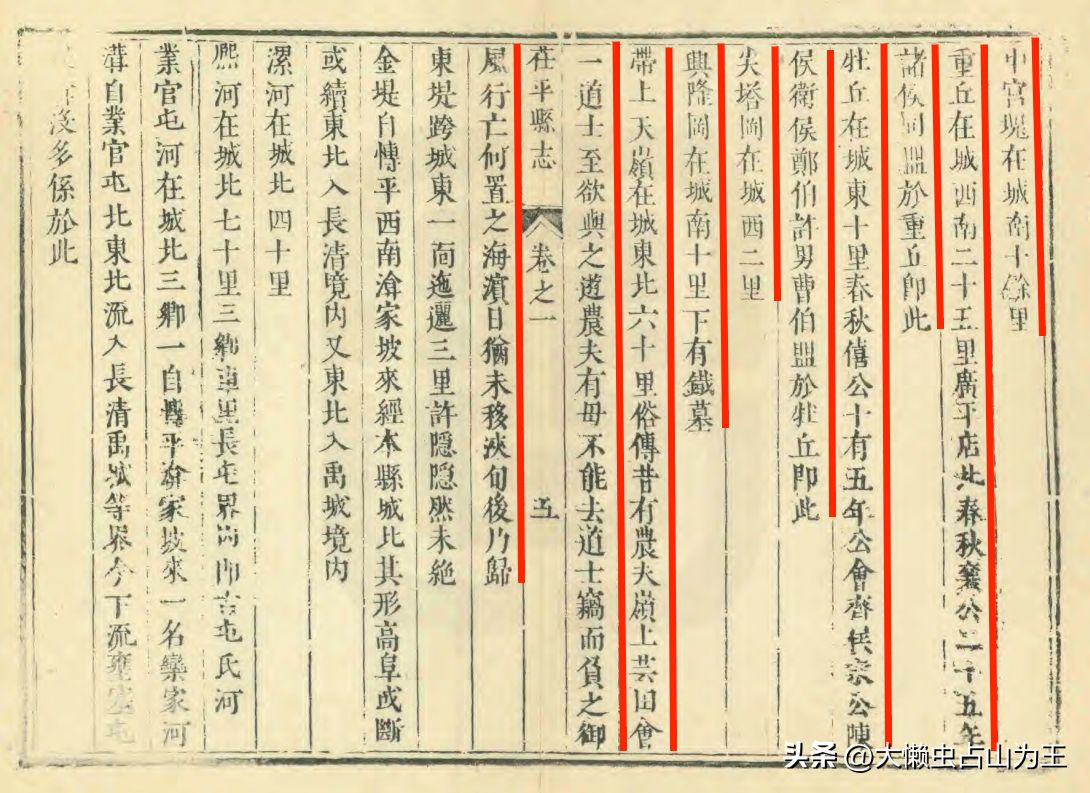 中宮堌在城南十餘里
重丘在城西南二十五里廣平店北春秋襄公二十五年
諸侯同盟於重丘即此
牡丘在城東十里春秋僖公十有五年公會齊侯宋公陳
侯衛侯鄭伯許男曹伯盟於牡丘即此
尖塔岡在城西二里
興隆岡在城南十里下有鐵墓
帶上天嶺在城東北六十里俗傳昔有農夫嶺上芸田會
一道士至欲與之遊農夫有母不能去道士竊而負之御
風行亡何置之海濱日猶未移浹旬後乃歸
茌平縣志 卷之一 五
東堤跨城東一面迤邐三里許隱隱然未絕
金堤自博平西南滄家坡來經本縣城北其形高阜或斷
或續東北入長清境內又東北入禹城境內
漯河在城北四十里
熙河在城北七十里三鄉里長屯界內即古屯氏河
業官屯河在城北三鄉一自博平滄家坡來一名欒家河
溝自業官屯北東北流入長清禹城等界今下流壅塞屯
淺多係於此
头条 @大懒虫占山为王